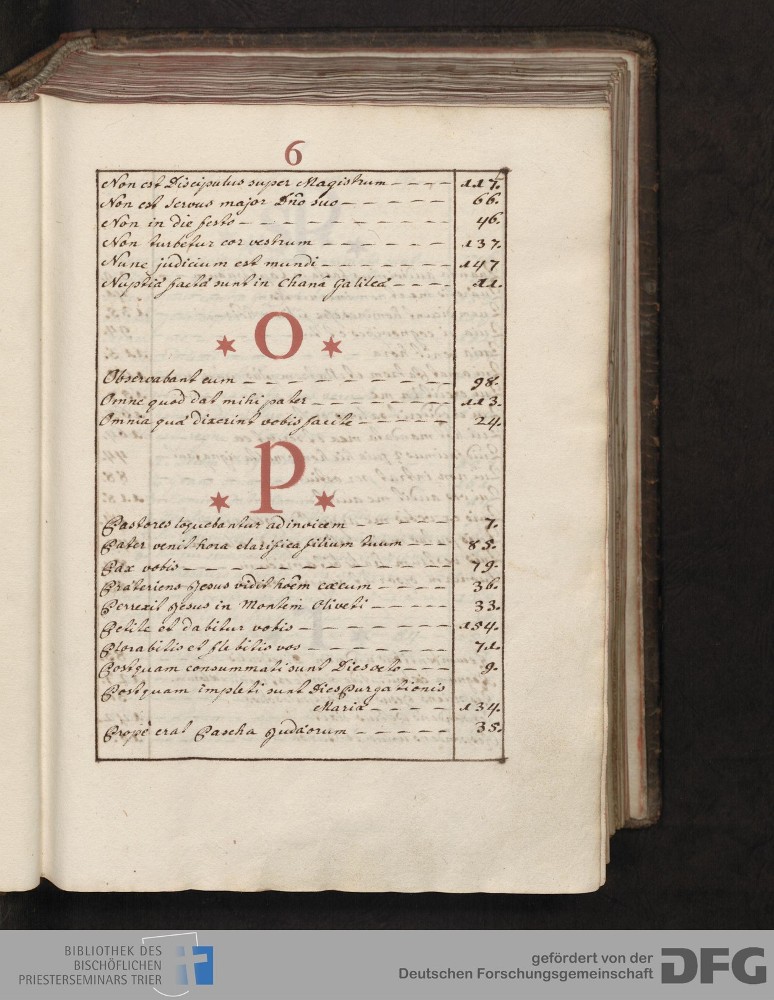 6
Non est Discipulus super Magistrum - - - - 117.
Non est Servus major Dño suo - - - - - - 66.
Non in die festo - - - - - - - - - - - 46.
Non turbetur cor vestrum - - - - - - - 137.
Nunc judicium est mundi - - - - - - - 147
Nuptiæ factæ sunt in Chana Galileæ - - - - 11.
* O *
Observabant eum - - - - - - - - - - - 98.
Omne quod dat mihi pater - - - - - - - 113.
Omnia quæ dixerint vobis facite - - - - - 24.
* P *
Pastores loquebantur ad invicem - - - - - 7.
Pater venit hora clarifica filium tuum - - - 85.
Pax vobis - - - - - - - - - - - - - - 79.
Præteriens Jesus vidit hoẽm cæcum - - - - 36.
Perrexit Jesus in Montem Oliveti - - - - 33.
Petite et dabitur vobis - - - - - - - - 154.
Plorabitis et flebitis vos - - - - - - - 71.
Postquam consummati sunt Dies octo - - - 9.
Postquam impleti sunt Dies Purgationis
Mariæ - - - - 134.
Prope erat Pascha Judæorum - - - - - 35.
BIBLIOTHEK DES
BISCHÖFLICHEN
PRIESTERSEMINARS TRIER
gefördert von der
Deutschen Forschungsgemeinschaft
DFG